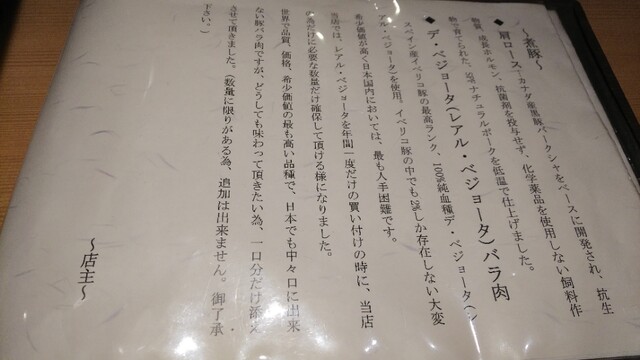 ～煮豚～
◆肩ロース カナダ産黒豚バークシャをベースに開発され、抗生
物質、成長ホルモン、抗菌剤を投与せず、化学薬品を使用しない飼料作
物で育てられた、ナチュラルポークを低温で仕上げました。
◆デ・ベジョータ(レアル・ベジョータ)バラ肉
スペイン産イベリコ豚の最高ランク、100%純血種デ・ベジョータ(レ
アル・ベジョータ)を使用。イベリコ豚の中でも2%しか存在しない大変
希少価値が高く日本国内においては、最も入手困難です。
当店では、レアル・ベジョータを年間一度だけの買い付けの時に、当店
の為だけに必要な数量だけ確保して頂ける様になりました。
世界で品質、価格、希少価値の最も高い品種で、日本でも中々口に出来
ない豚バラ肉ですが、どうしても味わって頂きたい為、一口分だけ添え
させて頂きました。(数量に限りがある為、追加は出来ません。御了承
下さい。)
～店主～